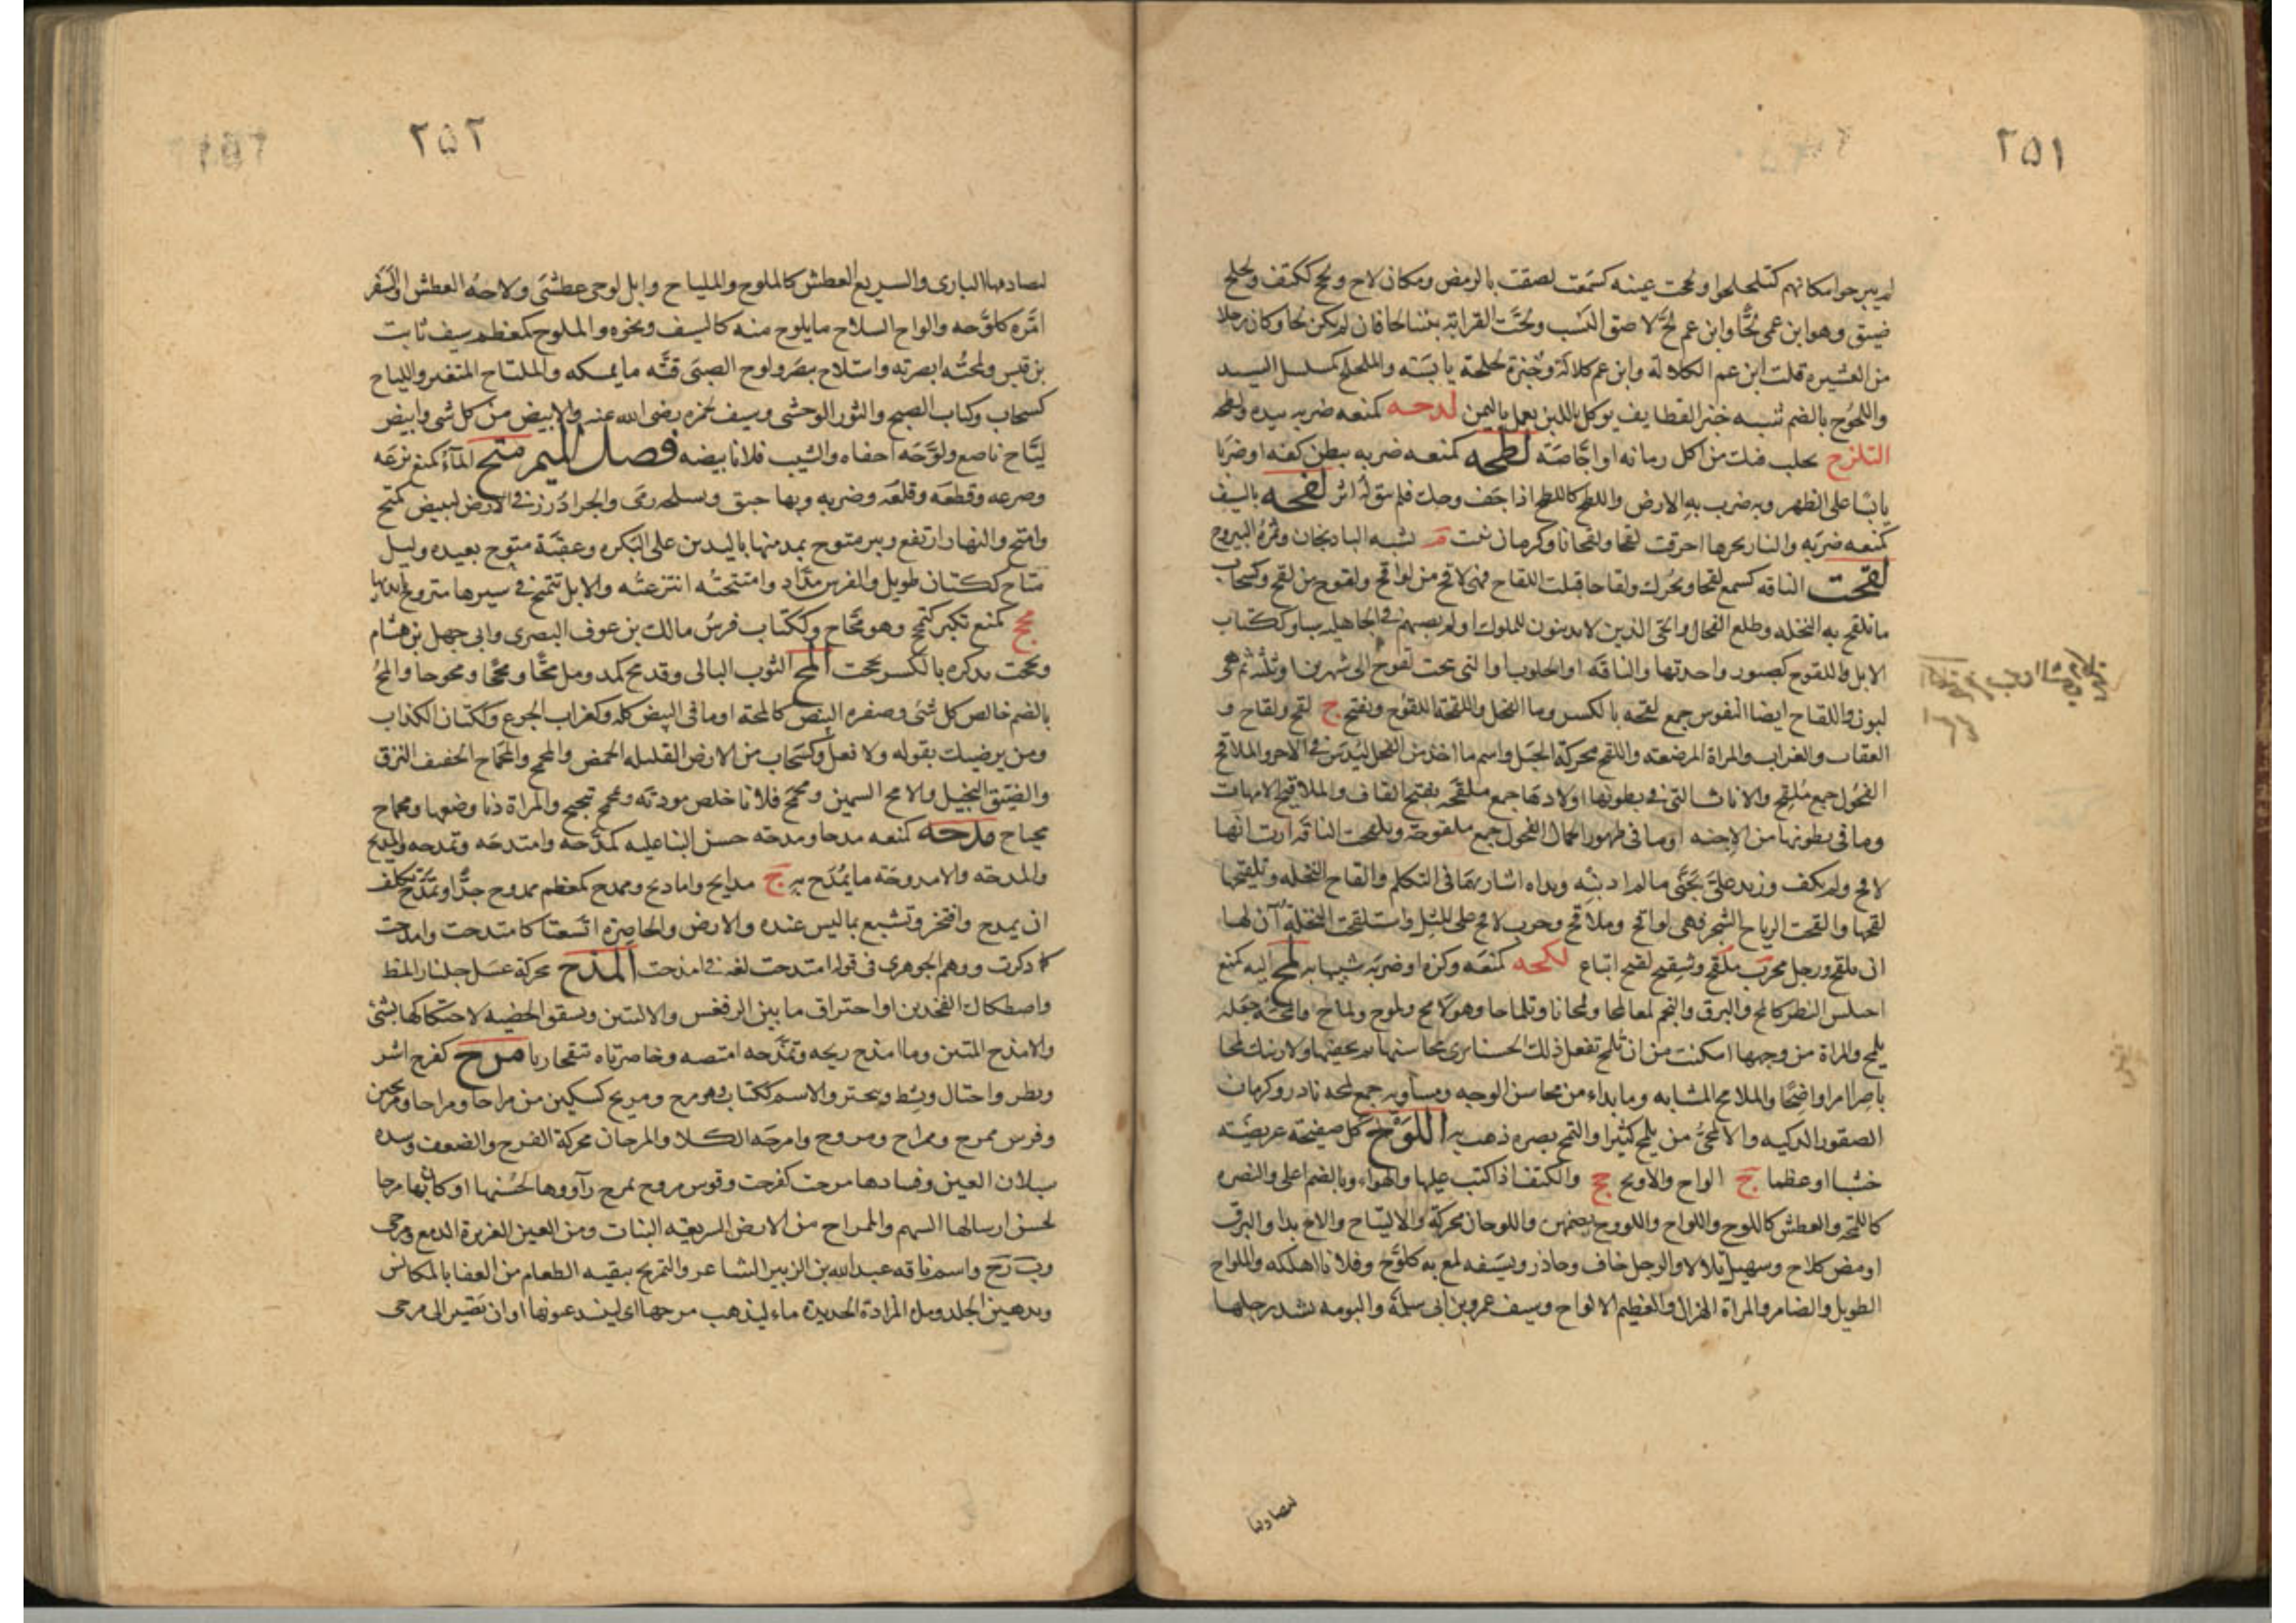 ٢٥١
لم يبرحوا مكانهم كتلحلحوا ولححت عينه كسمعت لصقت بالرمص ومكان لاح ولحح ككتف ولحلح
ضيق وهو ابن عمى لحًّا وابن عم لحّ لاصق النسب ولحّت القرابة بيننا لحا فان لم يكن لحا وكان رجلا
من العشيره قلت ابن عم الكلالة وابن عم كلالة وخبزة لحلحة يابسة والملحلح كمسلسل السيد
واللحوح بالضم شبه خبز القطايف يوكل باللبن يعمل باليمن لدحه كمنعه ضربه بيده
التلزح تحلب فيك من اكل رمانه او اجّاصة لطحه كمنعه ضربه ببطن كفه او ضربا
لينا على الظهر وبه ضرب به الارض واللطح كاللطخ اذا جف وحك فلم يبق له اثر لفحه بالسيف
كمنعه ضربه والنار بحرها احرقت لفحا ولفحانا وكرمان نبت م يشبه الباذنجان وثمرة اليبروح
لقحت الناقه كسمع لقحا ويحرك ولقاحا قبلت اللقاح فهى لاقح من لواقح ولقوح من لقح وكسحاب
ما تلقح به النخله وطلع الفحال والحى الذين لا يدينون للملوك او لم يصبهم فى الجاهليه سبا وككتاب
الابل واللقوح كصبور واحدتها والناقة او الحلوب او التى نتجت لقوح الى شهرين او ثلثة ثم هى
لبون واللقاح ايضا النفوس جمع لقحه بالكسر وماء الفحل واللقحة اللقوح ويفتح ج لقح ولقاح و
العقاب والغراب والمراة المرضعه واللقح محركة الحبل واسم ما اخذ من الفحل ليدس فى الاخر والملاقح
الفحول جمع مُلقِح والاناث التى فى بطونها اولادها جمع ملقحة بفتح القاف والملاقيح الامهات
وما فى بطونها من الاجنه او ما فى ظهور الجمال الفحول جمع ملقوحة وتلقحت الناقة ارت انها
لاقح ولم يكف وزيد على تجنّى مالم اذنبه ويداه اشار بهما فى التكلم والقاح النخله وتلقيحها
لقحها والقحت الرياح الشجر فهى لواقح وملاقح وحرب لاقح على المثل واستلقحت النخلة آن لها
ان تلقح ورجل مجرّب ملقح وشقيح لقيح اتباع لكحه كمنعه وكزه او ضربه شبيها به لمح اليه كمنع
اختلس النظر كالمح والبرق والنجم لمعا لمحا ولمحانا وتلماحا وهو لامح ولموح ولماح والمحه جعله
يلمح والمراة من وجهها امكنت من ان تُلمح تفعل ذلك الحسنا ترى محاسنها ولارينك لمحا
باصرا امرا واضحًا والملامح المشابه وما بدا من محاسن الوجه ومساويه جمع لمحه نادر وكرمان
الصقور الذكيه والالمحىّ من يلمح كثيرا والتمح بصره ذهب به اللّوح كل صفيحة عريضة
خشبا او عظما ج الواح والاويح جج والكتف اذا كتب عليها والهواء وبالضم اعلى والنظره
كاللمحة والعطش كاللوح واللواح واللووح بضمهن واللوحان محركة والالتياح والاح بدا والبرق
اومض كلاح وسهيل تلالا والرجل خاف وحاذر وبسيفه لمع به كلوّح وفلانا اهلكه والملواح
الطويل والضامر والمراة الهزال والعظيم الالواح وسيف عمرو بن ابى سلمة والبومه تشد رجلها
٢٥٢
ليصاد بها البازى والسريع العطش كالملوح والملياح وابل لوحى عطشى ولاحه العطش او السفر
غيّره كلوّحه والواح السلاح ما يلوح منه كالسيف ونحوه والملوح كمعظم سيف ثابت
بن قيس ولحته ابصرته واستلاح تبصر ولوح الصبى قتّه ما يمسكه والملتاح المتغير واللياح
كسحاب وكتاب الصبح والثور الوحشى وسيف لحمزه رضى الله عنه والابيض من كل شى وابيض
ليّاح ناصع ولوّحه احماه والشيب فلانا بيضه فصل الميم متح المآء كمنع نزعه
وصرعه وقطعه وقلعه وضربه وبها حبق وبسلحه رمى والجراد رز فى الارض ليبيض كمتح
وامتح والنهار ارتفع وبير متوح يمد منها باليدين على البكره وعقبة متوح بعيده وليل
متاح ككتان طويل والفرس مدّاد وامتتحته انتزعته والابل تتمتح فى سيرها تتروح بايديها
مجح كمنع تكبر كتمجح وهو مجّاح وككتاب فرس مالك بن عوف النصرى وابى جهل بن هشام
ومجحت بذكره بالكسر بجحت المح الثوب البالى وقد مح كمد ومل محًّا ومححًا ومحوحا والمحُّ
بالضم خالص كل شى وصفره البيض كالمحة او ما فى البيض كله وكغراب الجوع وككتان الكذاب
ومن يرضيك بقوله ولا فعل وكسحاب من الارض القليله الحمض والمحمح والمحماح الخفيف النزق
والضيق البخيل والامح السمين ومحمح فلانا خلص مودته وتمحمح تبحبح والمراة دنا وضعها ومحماح
بحباح مدحه كمنعه مدحا ومدحه حسن الثنا عليه كمدّحه وامتدحه وتمدحه والمديح
والمدحه والامدوحه ما يُمدَح به ج مدايح واماديح وممدح كمعظم ممدوح جدًّا وتمدح تكلف
ان يمدح وافتخر وتشبع بما ليس عنده والارض والخاصرة اتسعتا كامتدحت وامدحت
كاذكرت ووهم الجوهرى فى قوله امتدحت لغه فى اندحت المذح محركة عسل جلنار المظ
واصطكاك الفخذين او احتراق ما بين الرفغين والاليتين وتشقق الخصيه لاحتكاكها بشى
والامذح المنتن وما امذح ريحه وتمذّحه امتصه وخاصرتاه انتفختا ريا مرح كفرح اشر
وبطر واختال ونشط وتبختر والاسم ككتاب وهو مرح ومريح كسكين من مراحا ومراحا ومرحين
وفرس ممرح وممراح ومروح وامرحه الكلا والمرحان محركة الفرح والضعف وشده
سيلان العين وفسادها مرحت كفرحت وقوس مروح يمرح رآووها لحُسنها او كان بها مرحا
لحسن ارسالها السهم والممراح من الارض السريعه النبات ومن العين الغزيرة الدمع ومرحى
وبرحى واسم ناقه عبد الله بن الزبير الشاعر والتمريح تنقيه الطعام من العفا بالمكانس
وتدهين الجلد ومل المزادة الجديدة ماء ليذهب مرحها اى لينسد عيونها او ان تصير الى مرحى